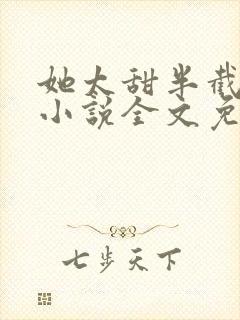 她太甜半截
小说全文免
七步天下